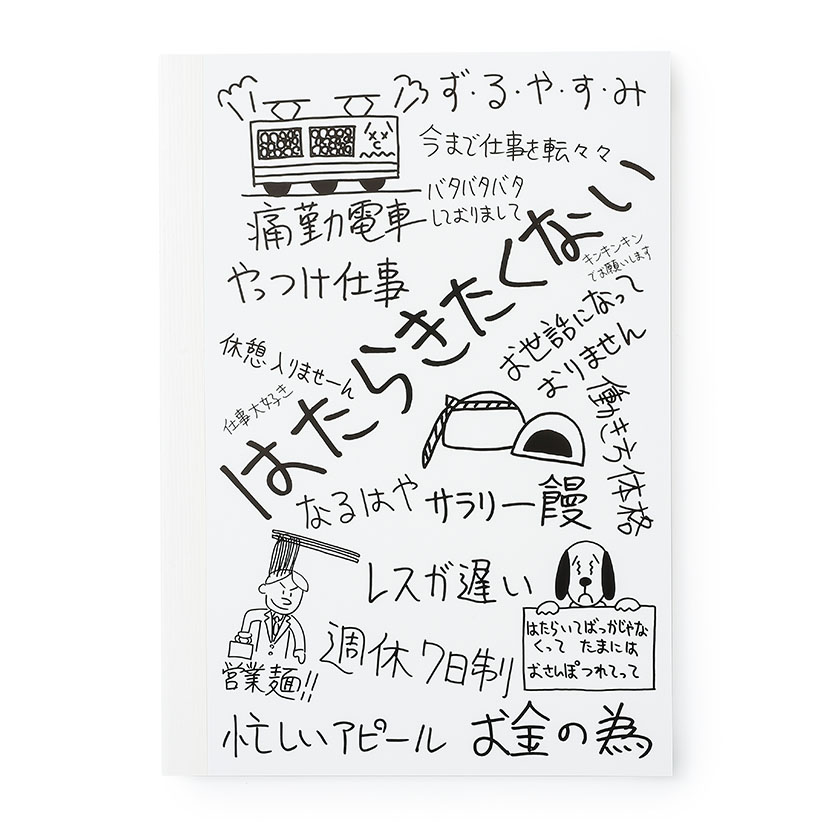 ず・る・や・す・み
今まで仕事を転々々
バタバタバタ
しておりまして
痛勤電車
やっつけ仕事
はたらきたくない
キンキンキン
でお願いします
お世話になって
おりません
休憩入りませーん
仕事大好き
働きち体格
なるはや
サラリー饅
レスが遅い
はたらいてばっかじゃな
くって たまには
おさんぽつれてって
週休7日制
営業麺!!
忙しいアピール
お金の為